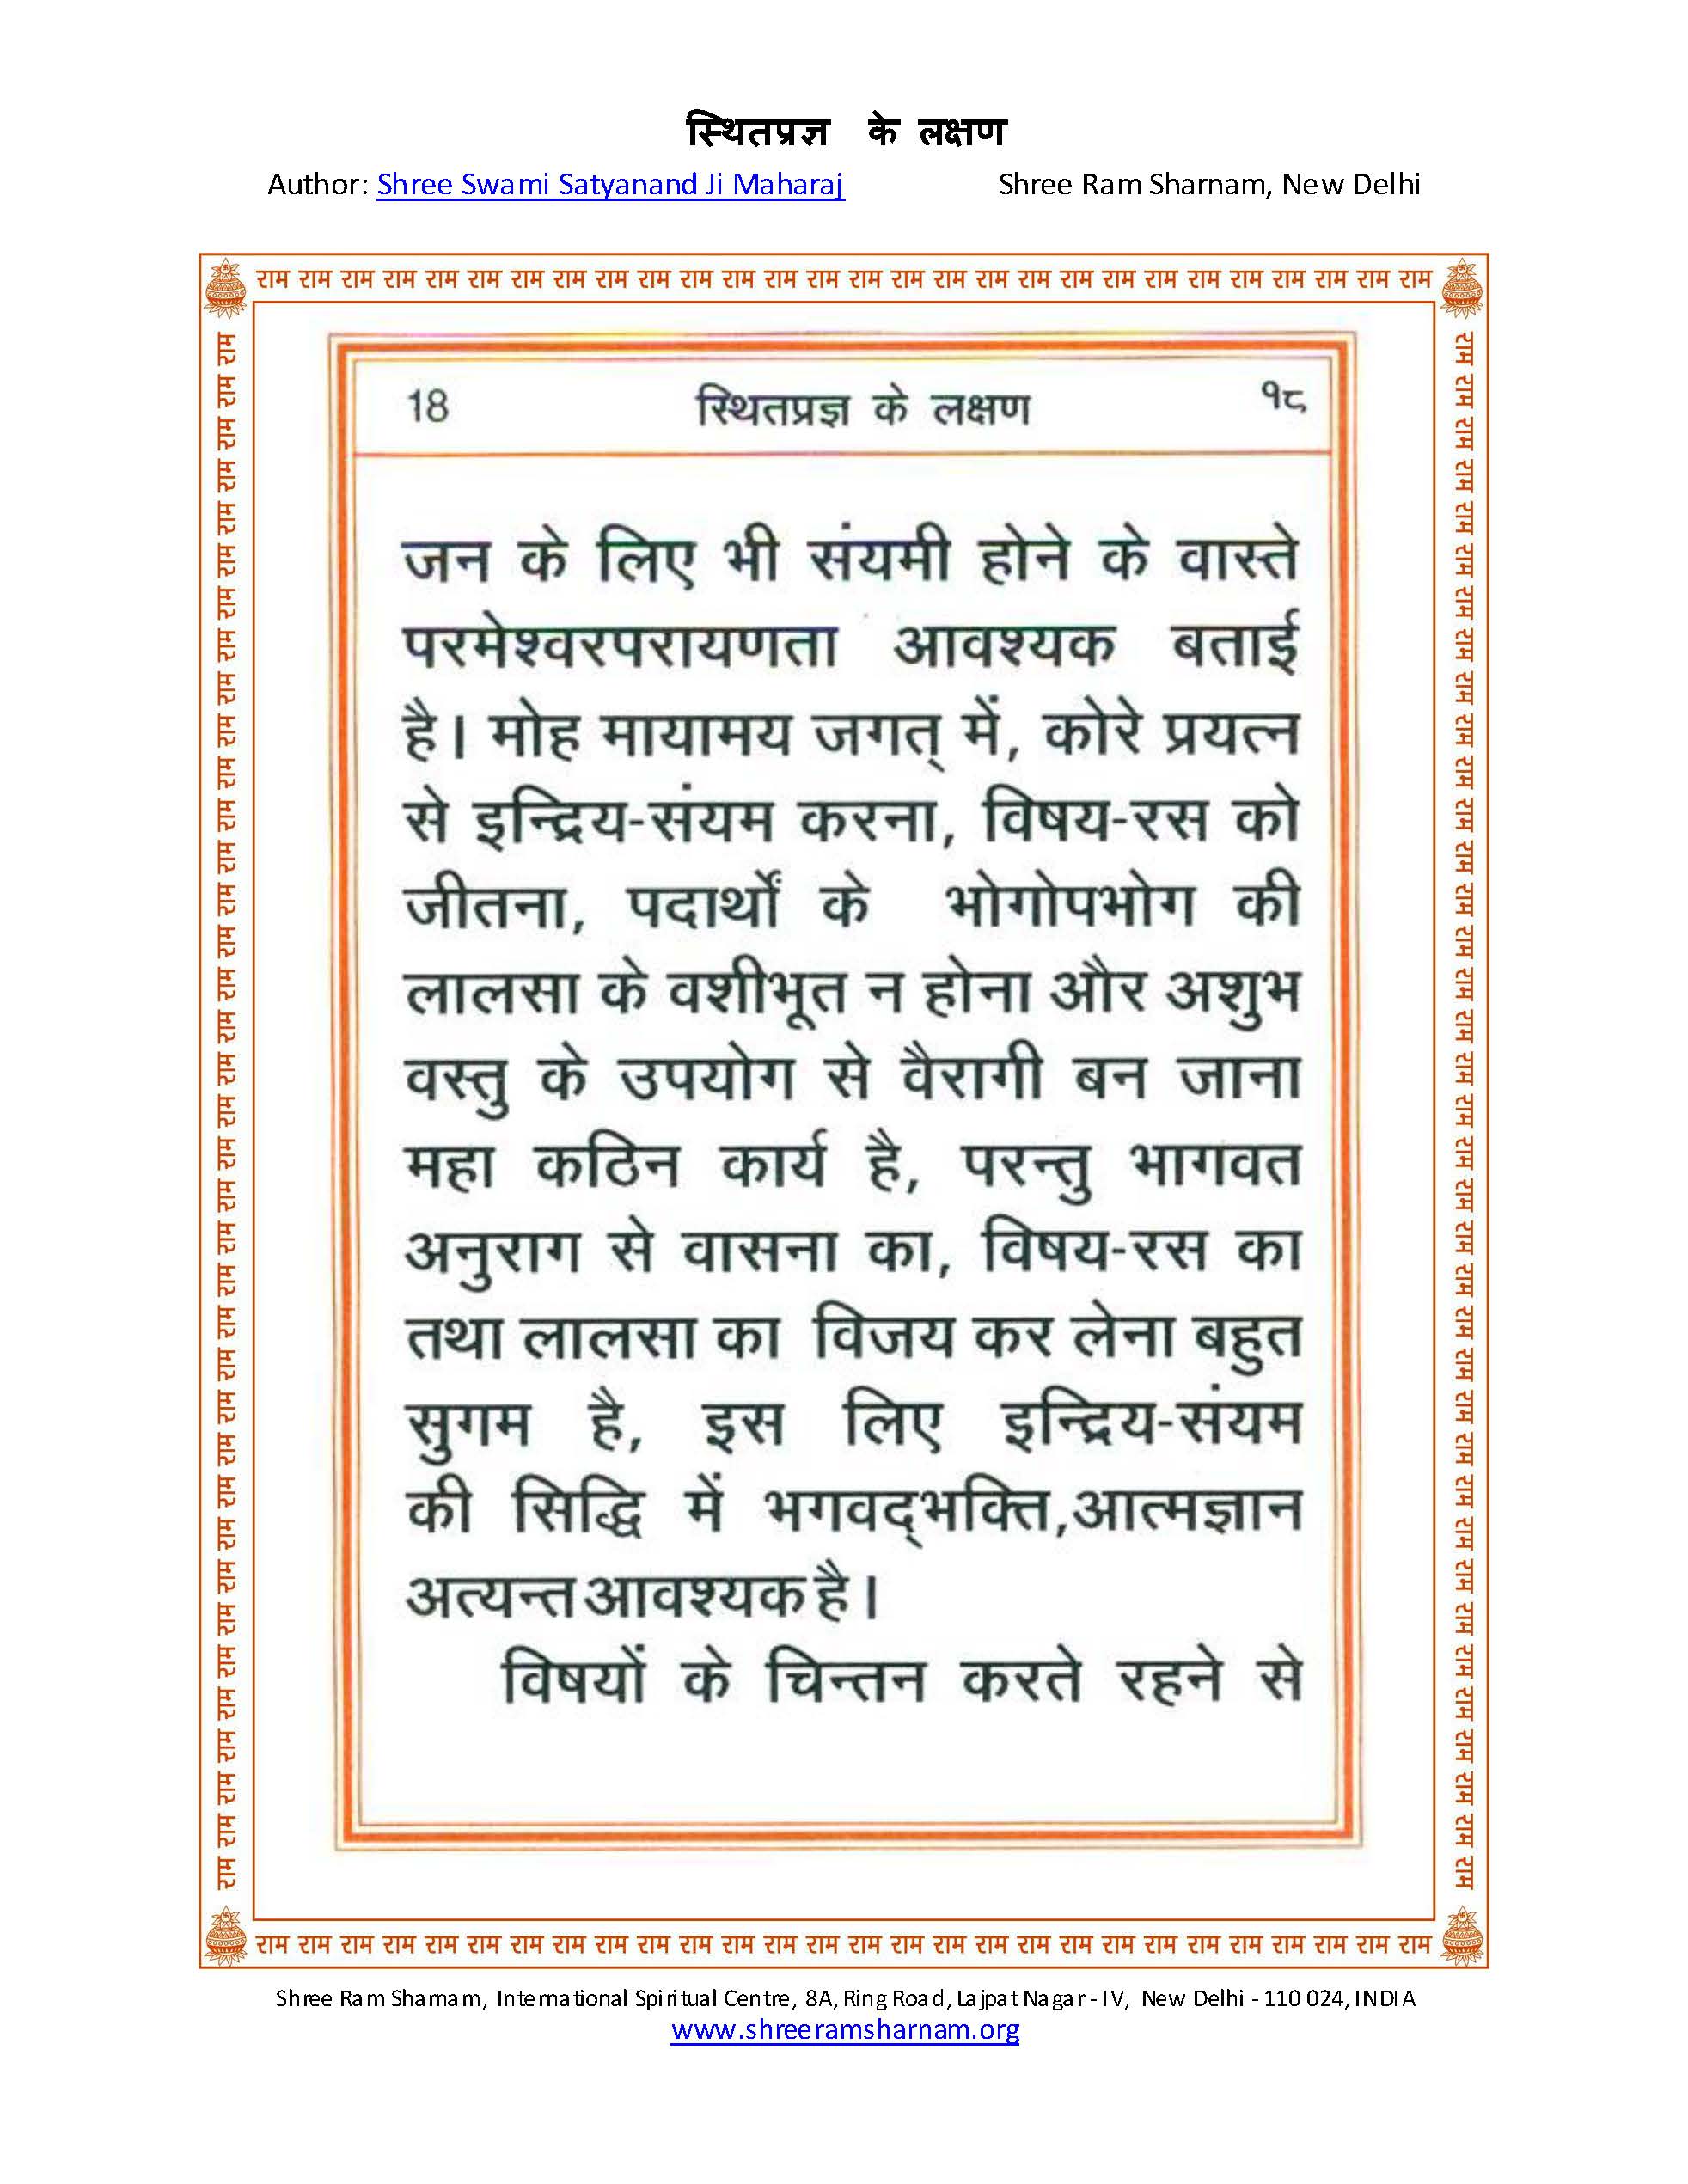 स्थितप्रज्ञ के लक्षण
Author: Shree Swami Satyanand Ji Maharaj Shree Ram Sharnam, New Delhi
राम राम राम राम राम राम राम राम राम राम राम राम राम राम राम राम राम राम राम राम राम राम राम राम राम राम राम राम
18 स्थितप्रज्ञ के लक्षण १८
जन के लिए भी संयमी होने के वास्ते
परमेश्वरपरायणता आवश्यक बताई
है। मोह मायामय जगत् में, कोरे प्रयत्न
से इन्द्रिय-संयम करना, विषय-रस को
जीतना, पदार्थों के भोगोपभोग की
लालसा के वशीभूत न होना और अशुभ
वस्तु के उपयोग से वैरागी बन जाना
महा कठिन कार्य है, परन्तु भागवत
अनुराग से वासना का, विषय-रस का
तथा लालसा का विजय कर लेना बहुत
सुगम है, इस लिए इन्द्रिय-संयम
की सिद्धि में भगवद्‌भक्ति,आत्मज्ञान
अत्यन्त आवश्यक है।
विषयों के चिन्तन करते रहने से
राम राम राम राम राम राम राम राम राम राम राम राम राम राम राम राम राम राम राम राम राम राम राम राम राम राम राम राम
राम राम राम राम राम राम राम राम राम राम राम राम राम राम राम राम राम राम राम राम राम राम राम राम राम राम राम राम राम राम राम राम राम राम राम राम राम
राम राम राम राम राम राम राम राम राम राम राम राम राम राम राम राम राम राम राम राम राम राम राम राम राम राम राम राम राम राम राम राम राम राम राम राम राम
Shree Ram Sharnam, International Spiritual Centre, 8A, Ring Road, Lajpat Nagar - IV, New Delhi - 110 024, INDIA
www.shreeramsharnam.org